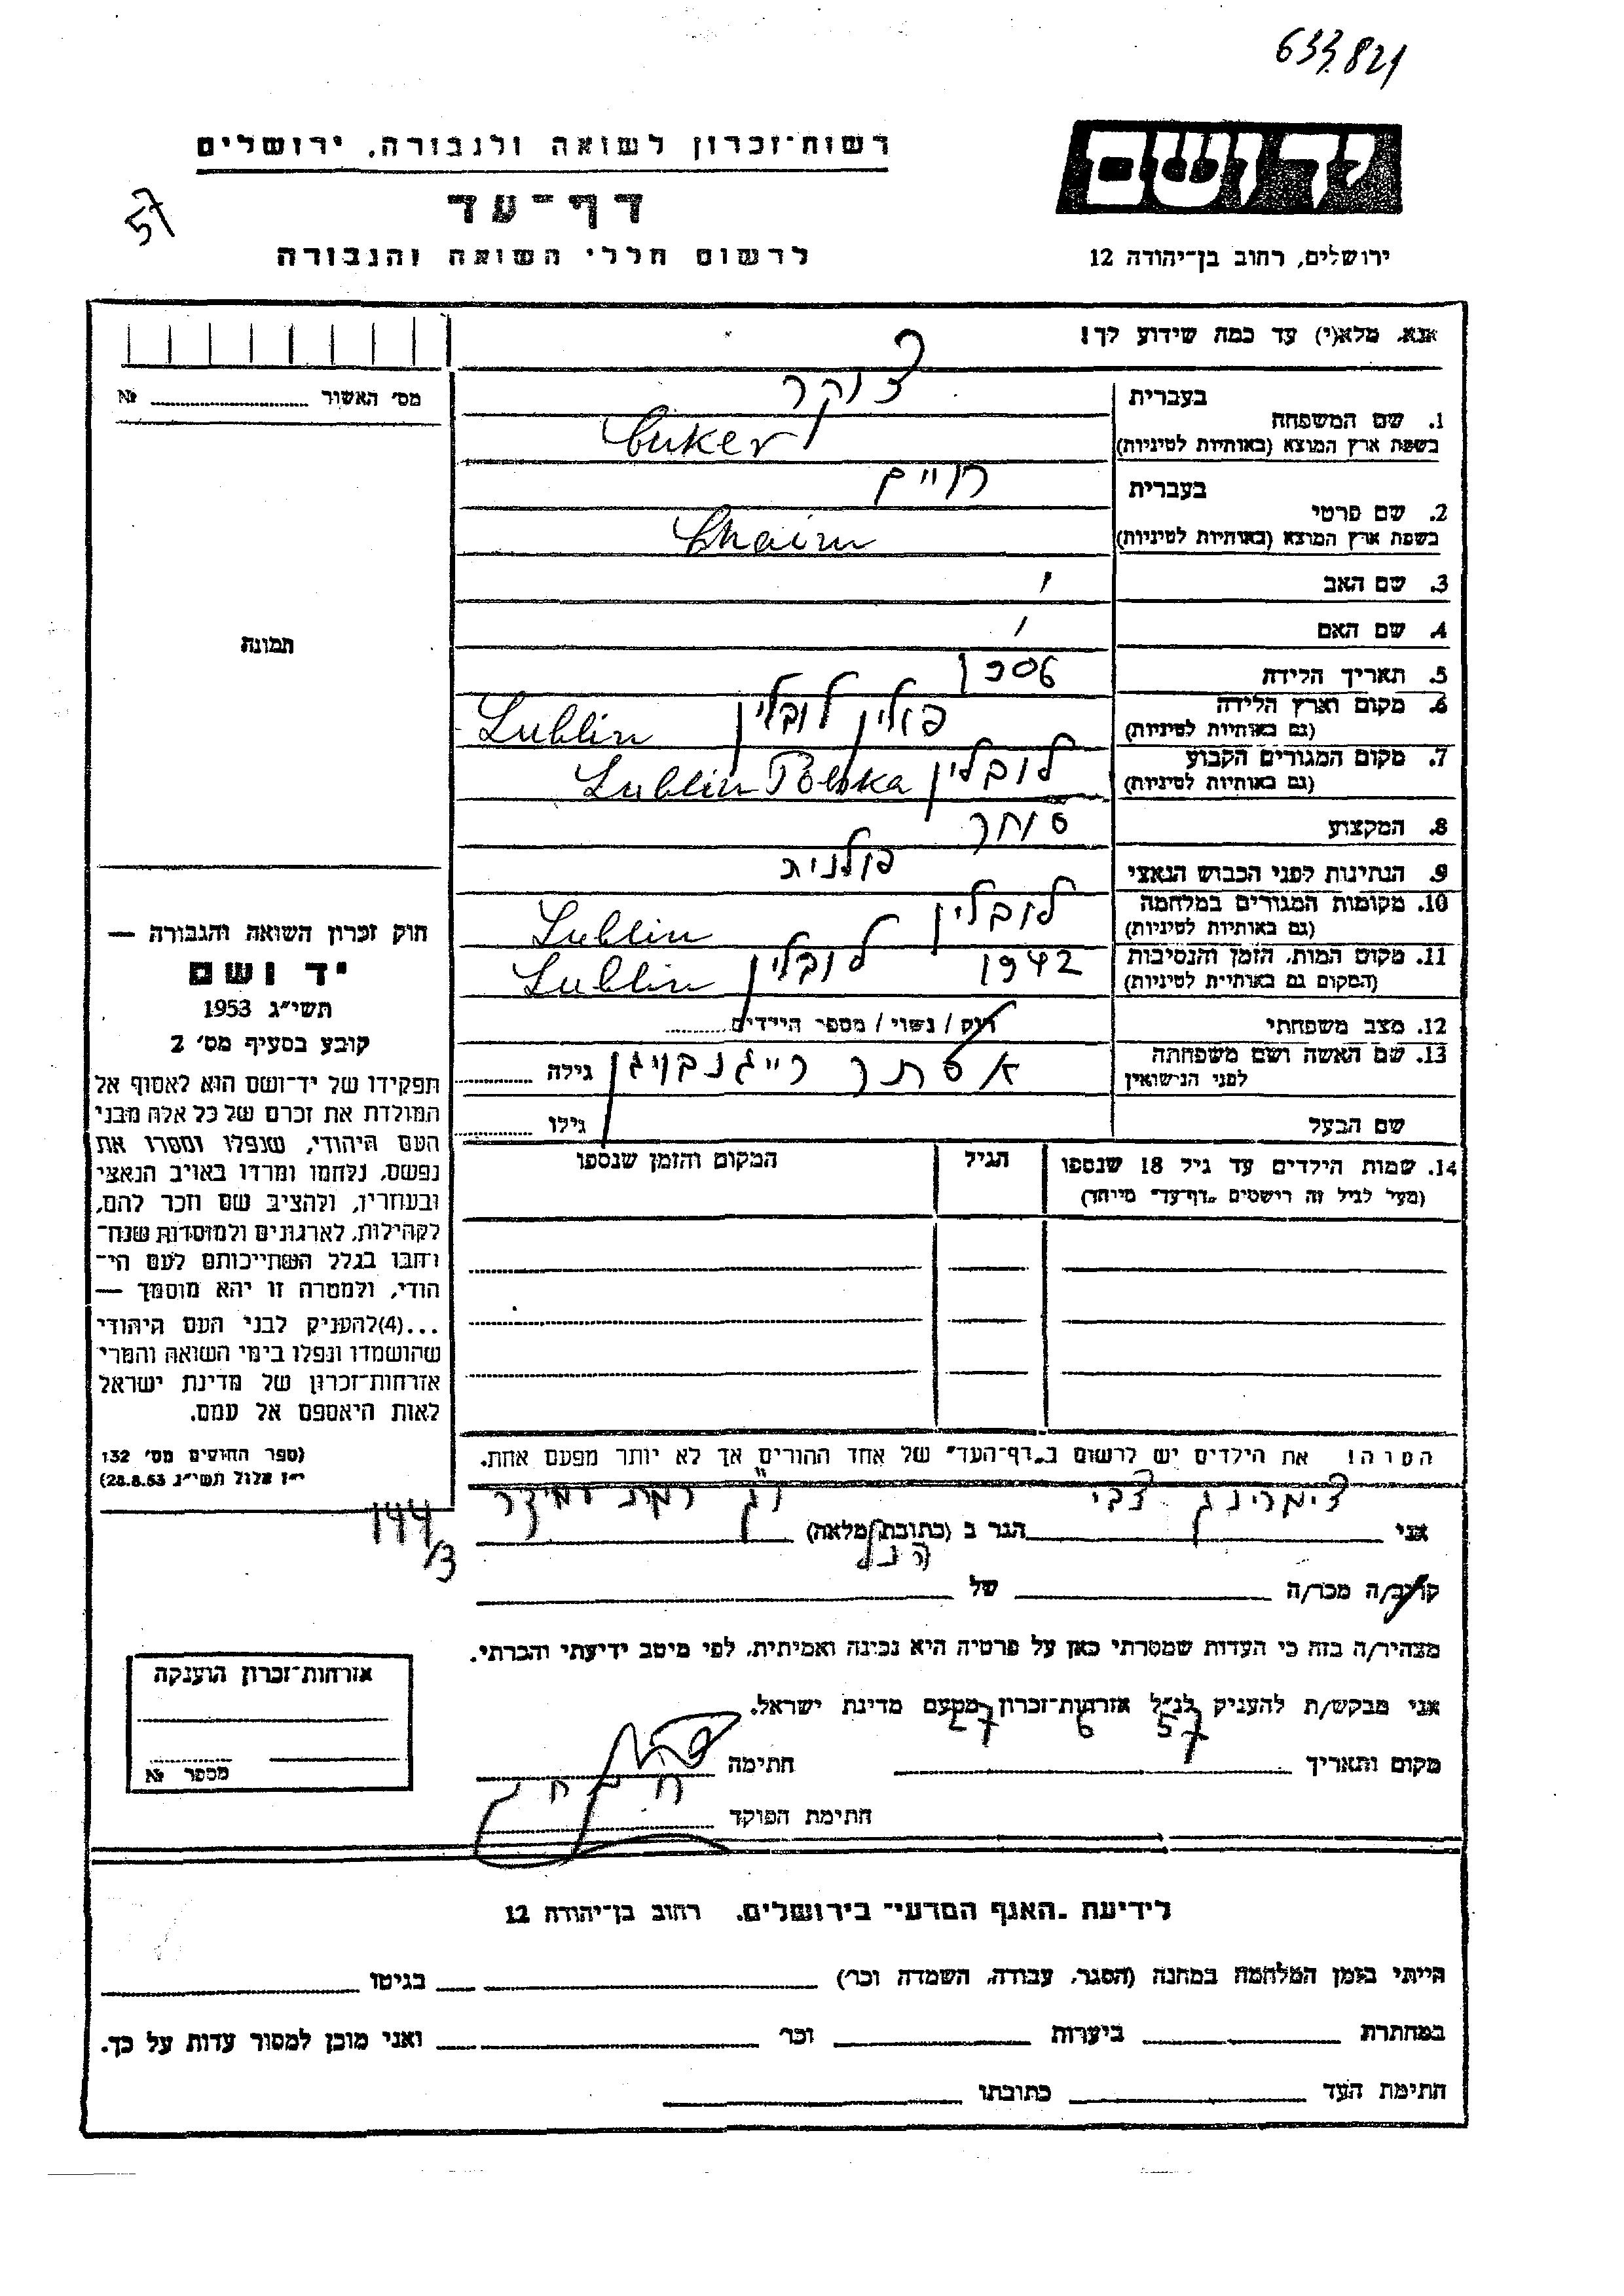 633.821
רשות־זכרון לשואה ולגבורה, ירושלים
יד ושם
דף־עד
57
לרשום חללי השואה והגבורה
ירושלים, רחוב בן־יהודה 12
אנא, מלא(י) עד כמה שידוע לך!
מס׳ האשור № 
בעברית צוקר
1. שם המשפחה
בשפת ארץ המוצא (באותיות לטיניות) Cuker
בעברית חיים
2. שם פרטי
בשפת ארץ המוצא (באותיות לטיניות) Chaim
3. שם האב
4. שם האם
תמונה
5. תאריך הלידה
6. מקום וארץ הלידה פולין לובלין Lublin
(גם באותיות לטיניות)
7. מקום המגורים הקבוע לובלין Lublin Polska
(גם באותיות לטיניות)
8. המקצוע סוחר
9. הנתינות לפני הכבוש הנאצי פולנית
10. מקומות המגורים במלחמה לובלין Lublin
(גם באותיות לטיניות)
11. מקום המות, הזמן והנסיבות 1942 לובלין Lublin
(המקום גם באותיות לטיניות)
12. מצב משפחתי רוק / נשוי / מספר הילדים
13. שם האשה ושם משפחתה אסתר גילה
לפני הנישואין
שם הבעל גילו
14. שמות הילדים עד גיל 18 שנספו הגיל המקום והזמן שנספו
(מעל לגיל זה רושמים „דף־עד״ מיוחד)
חוק זכרון השואה והגבורה —
יד ושם
תשי״ג 1953
קובע בסעיף מס׳ 2
תפקידו של יד־ושם הוא לאסוף אל
המולדת את זכרם של כל אלה מבני
העם היהודי, שנפלו ומסרו את
נפשם, נלחמו ומרדו באויב הנאצי
ובעוזריו, ולהציב שם וזכר להם,
לקהילות, לארגונים ולמוסדות שנח־
רבו בגלל השתייכותם לעם הי־
הודי, ולמטרה זו יהא מוסמך —
...(4)להעניק לבני העם היהודי
שהושמדו ונפלו בימי השואה והמרי
אזרחות־זכרון של מדינת ישראל
לאות היאספם אל עמם.
(ספר החוקים מס׳ 132
י״ז אלול תשי״ג 28.8.53)
הערה! את הילדים יש לרשום ב„דף־העד״ של אחד ההורים אך לא יותר מפעם אחת.
אני צימרינג צבי הגר ב (כתובת מלאה)
144/3
קרוב/ה מכר/ה של הנ״ל
מצהיר/ה בזה כי העדות שמסרתי כאן על פרטיה היא נכונה ואמיתית, לפי מיטב ידיעתי והכרתי.
אני מבקש/ת להעניק לנ״ל אזרחות־זכרון מטעם מדינת ישראל.
מקום ותאריך 27 6 57 חתימה
חתימת הפוקד
אזרחות־זכרון הוענקה
מספר №
לידיעת „האגף המדעי״ בירושלים, רחוב בן־יהודה 12
הייתי בזמן המלחמה במחנה (הסגר, עבודה, השמדה וכו׳) בגיטו
במחתרת ביערות וכו׳ ואני מוכן למסור עדות על כך.
חתימת העד כתובתו